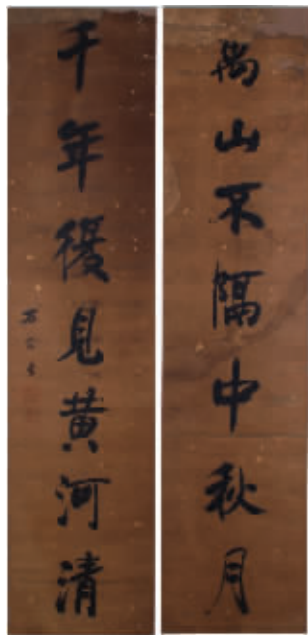 萬山不隔中秋月
千年復見黄河清